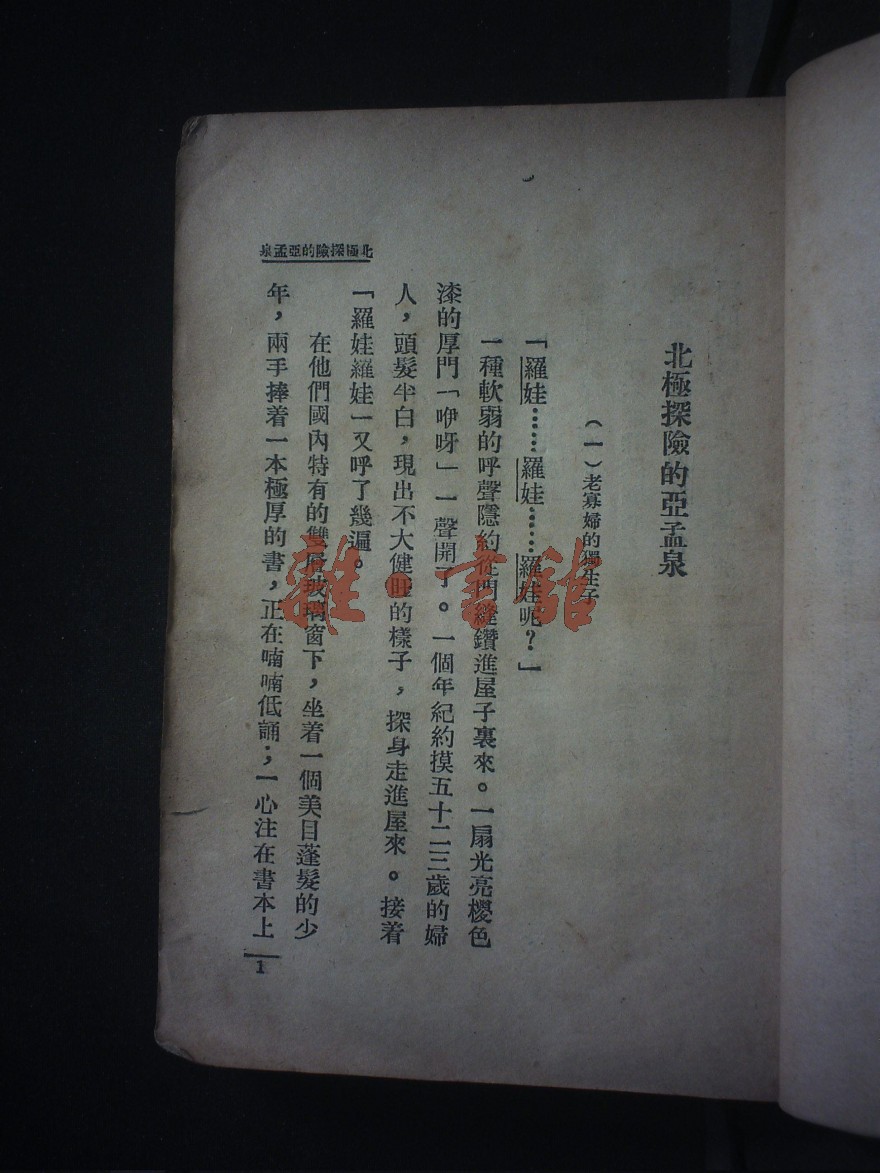 北極探險的亞孟泉
（一）老寡婦的獨生子
「羅娃……羅娃……羅娃呢？」
一種軟弱的呼聲隱約從門縫鑽進屋子裏來。一扇光亮椶色
漆的厚門「咿呀」一聲開了。一個年紀約摸五十二三歲的婦
人，頭髮半白，現出不大健旺的樣子，探身走進屋來。接着
「羅娃羅娃」又呼了幾遍。
在他們國內特有的雙層玻璃窗下，坐着一個美目蓬髮的少
年，兩手捧着一本極厚的書，正在喃喃低誦；一心注在書本上
北極探險的亞孟泉
1
雜·書館